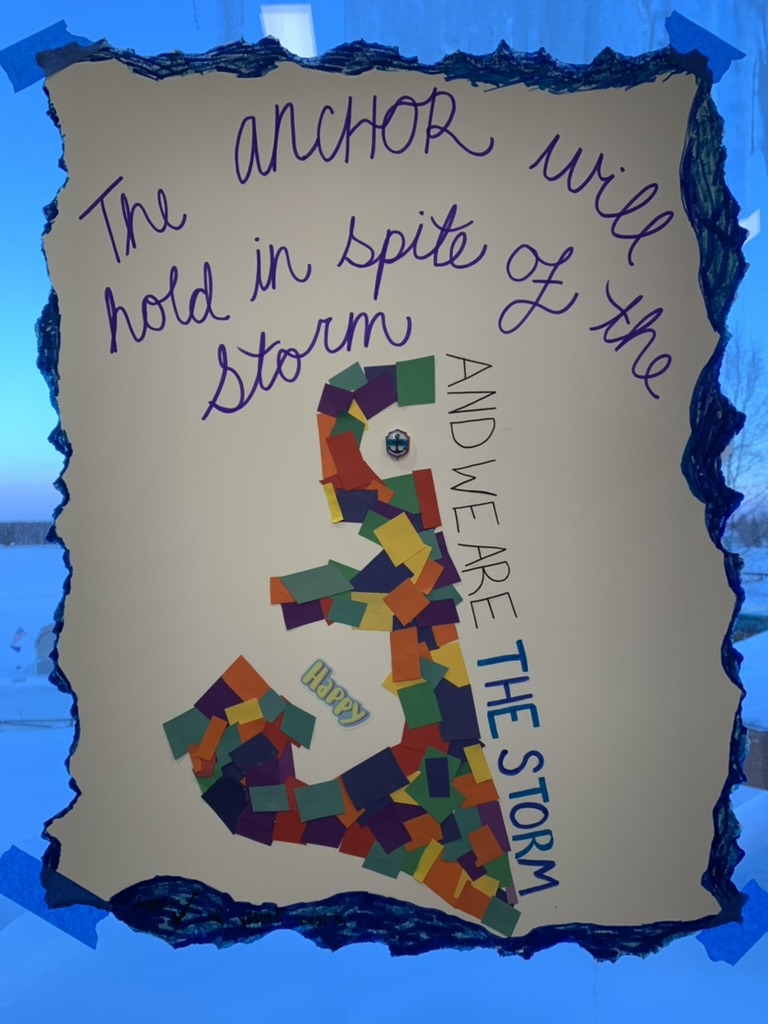 The ANCHOR will
hold in spite of the
storm
AND WE ARE THE STORM
Happy